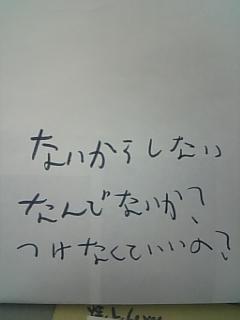 ないからしない
なんでないか？
つけなくていいの？